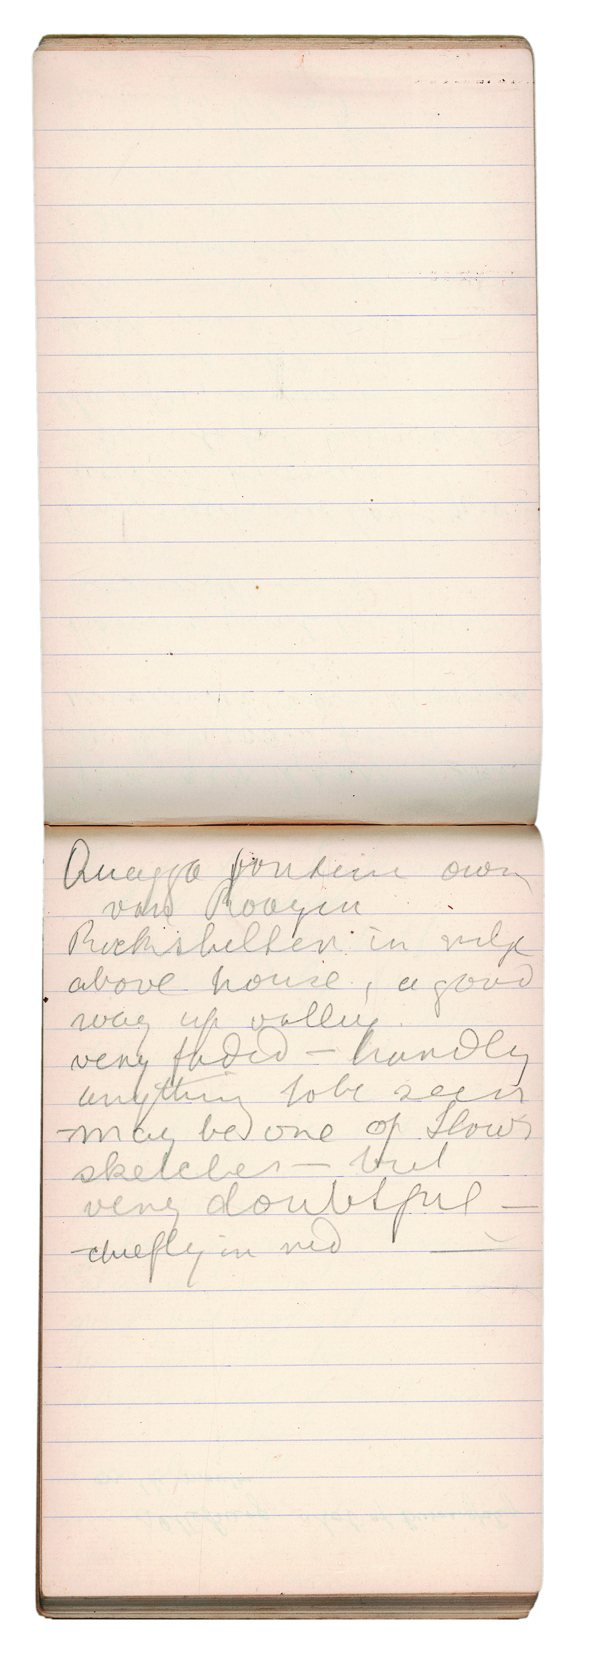 Quagga fontein own
van Rooyen
Rock shelter in
above house, a good
way up valley
very faded — hardly
anything to be seen
may be one of Stow's
sketches — but
very doubtful —
chiefly in red